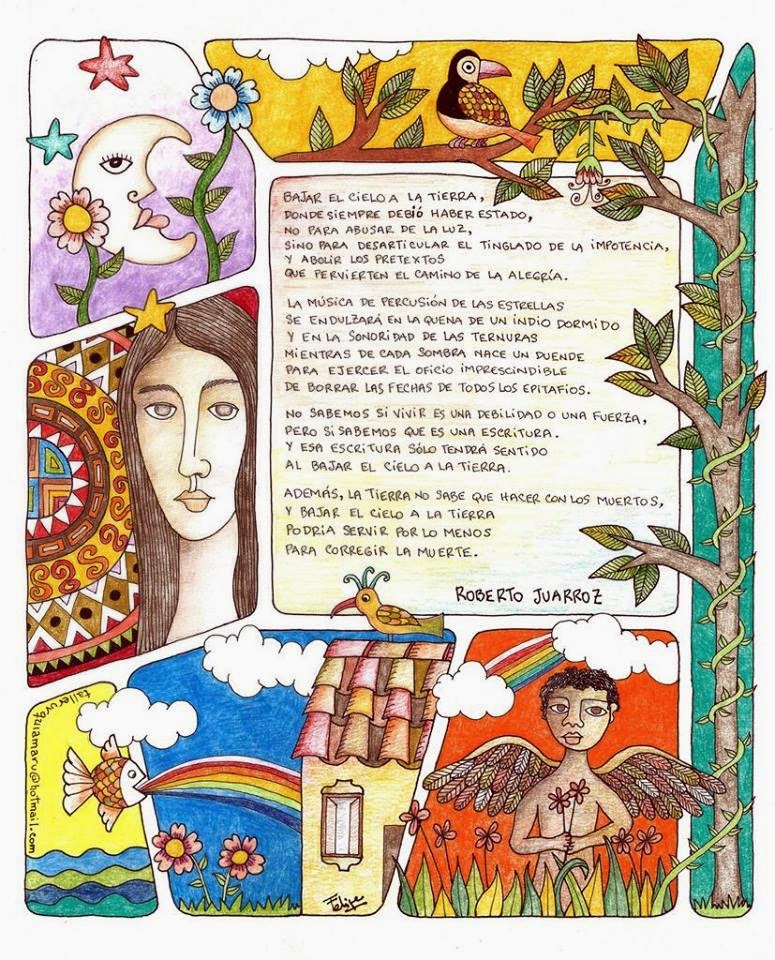 BAJAR EL CIELO A LA TIERRA,
DONDE SIEMPRE DEBIÓ HABER ESTADO,
NO PARA ABUSAR DE LA LUZ,
SINO PARA DESARTICULAR EL TINGLADO DE LA IMPOTENCIA,
Y ABOLIR LOS PRETEXTOS
QUE PERVIERTEN EL CAMINO DE LA ALEGRÍA.
LA MÚSICA DE PERCUSIÓN DE LAS ESTRELLAS
SE ENDULZARÁ EN LA QUENA DE UN INDIO DORMIDO
Y EN LA SONORIDAD DE LAS TERNURAS
MIENTRAS DE CADA SOMBRA NACE UN DUENDE
PARA EJERCER EL OFICIO IMPRESCINDIBLE
DE BORRAR LAS FECHAS DE TODOS LOS EPITAFIOS.
NO SABEMOS SI VIVIR ES UNA DEBILIDAD O UNA FUERZA,
PERO SI SABEMOS QUE ES UNA ESCRITURA.
Y ESA ESCRITURA SÓLO TENDRÁ SENTIDO
AL BAJAR EL CIELO A LA TIERRA.
ADEMÁS, LA TIERRA NO SABE QUE HACER CON LOS MUERTOS,
Y BAJAR EL CIELO A LA TIERRA
PODRÍA SERVIR POR LO MENOS
PARA CORREGIR LA MUERTE.
ROBERTO JUARROZ
Felipe